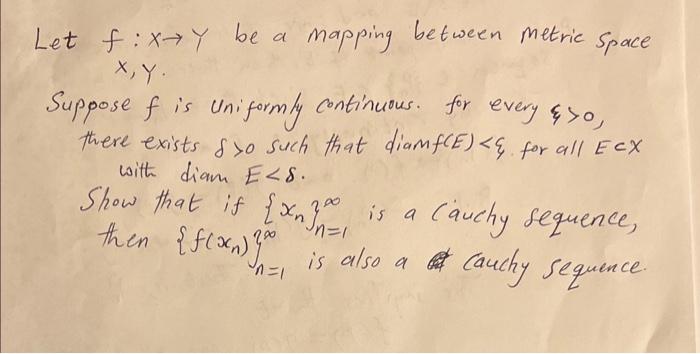 Let f : X → Y be a mapping between metric space
X, Y.
Suppose f is uniformly continuous. for every ξ > 0,
there exists δ > 0 such that diam f(E) < ξ. for all E ⊂ X
with diam E < δ.
Show that if {xₙ}∞ₙ₌₁ is a Cauchy sequence,
then {f(xₙ)}∞ₙ₌₁ is also a Cauchy sequence.